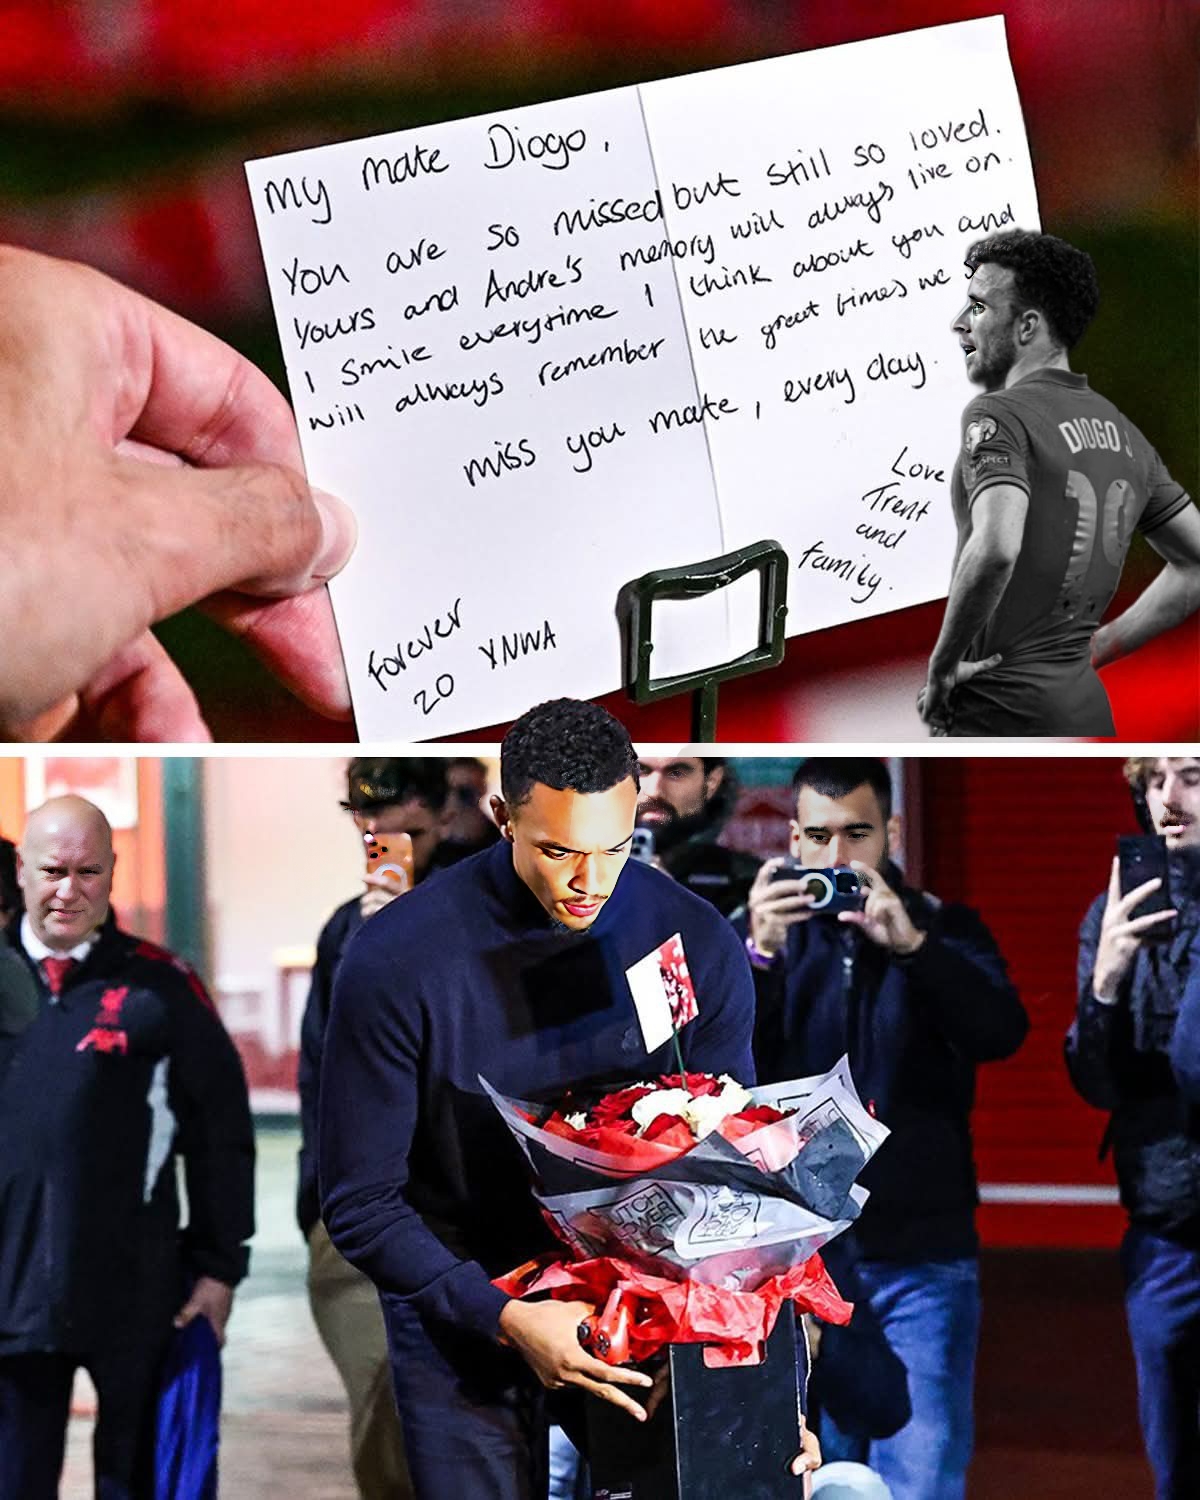 My mate Diogo,
You are so missed but still so loved.
Yours and Andre's memory will always live on.
I smile everytime I think about you and
will always remember the great times we s
miss you mate, every day.
Love
Trent
and
family.
Forever
20 YNWA
DIOGO J
RESPECT